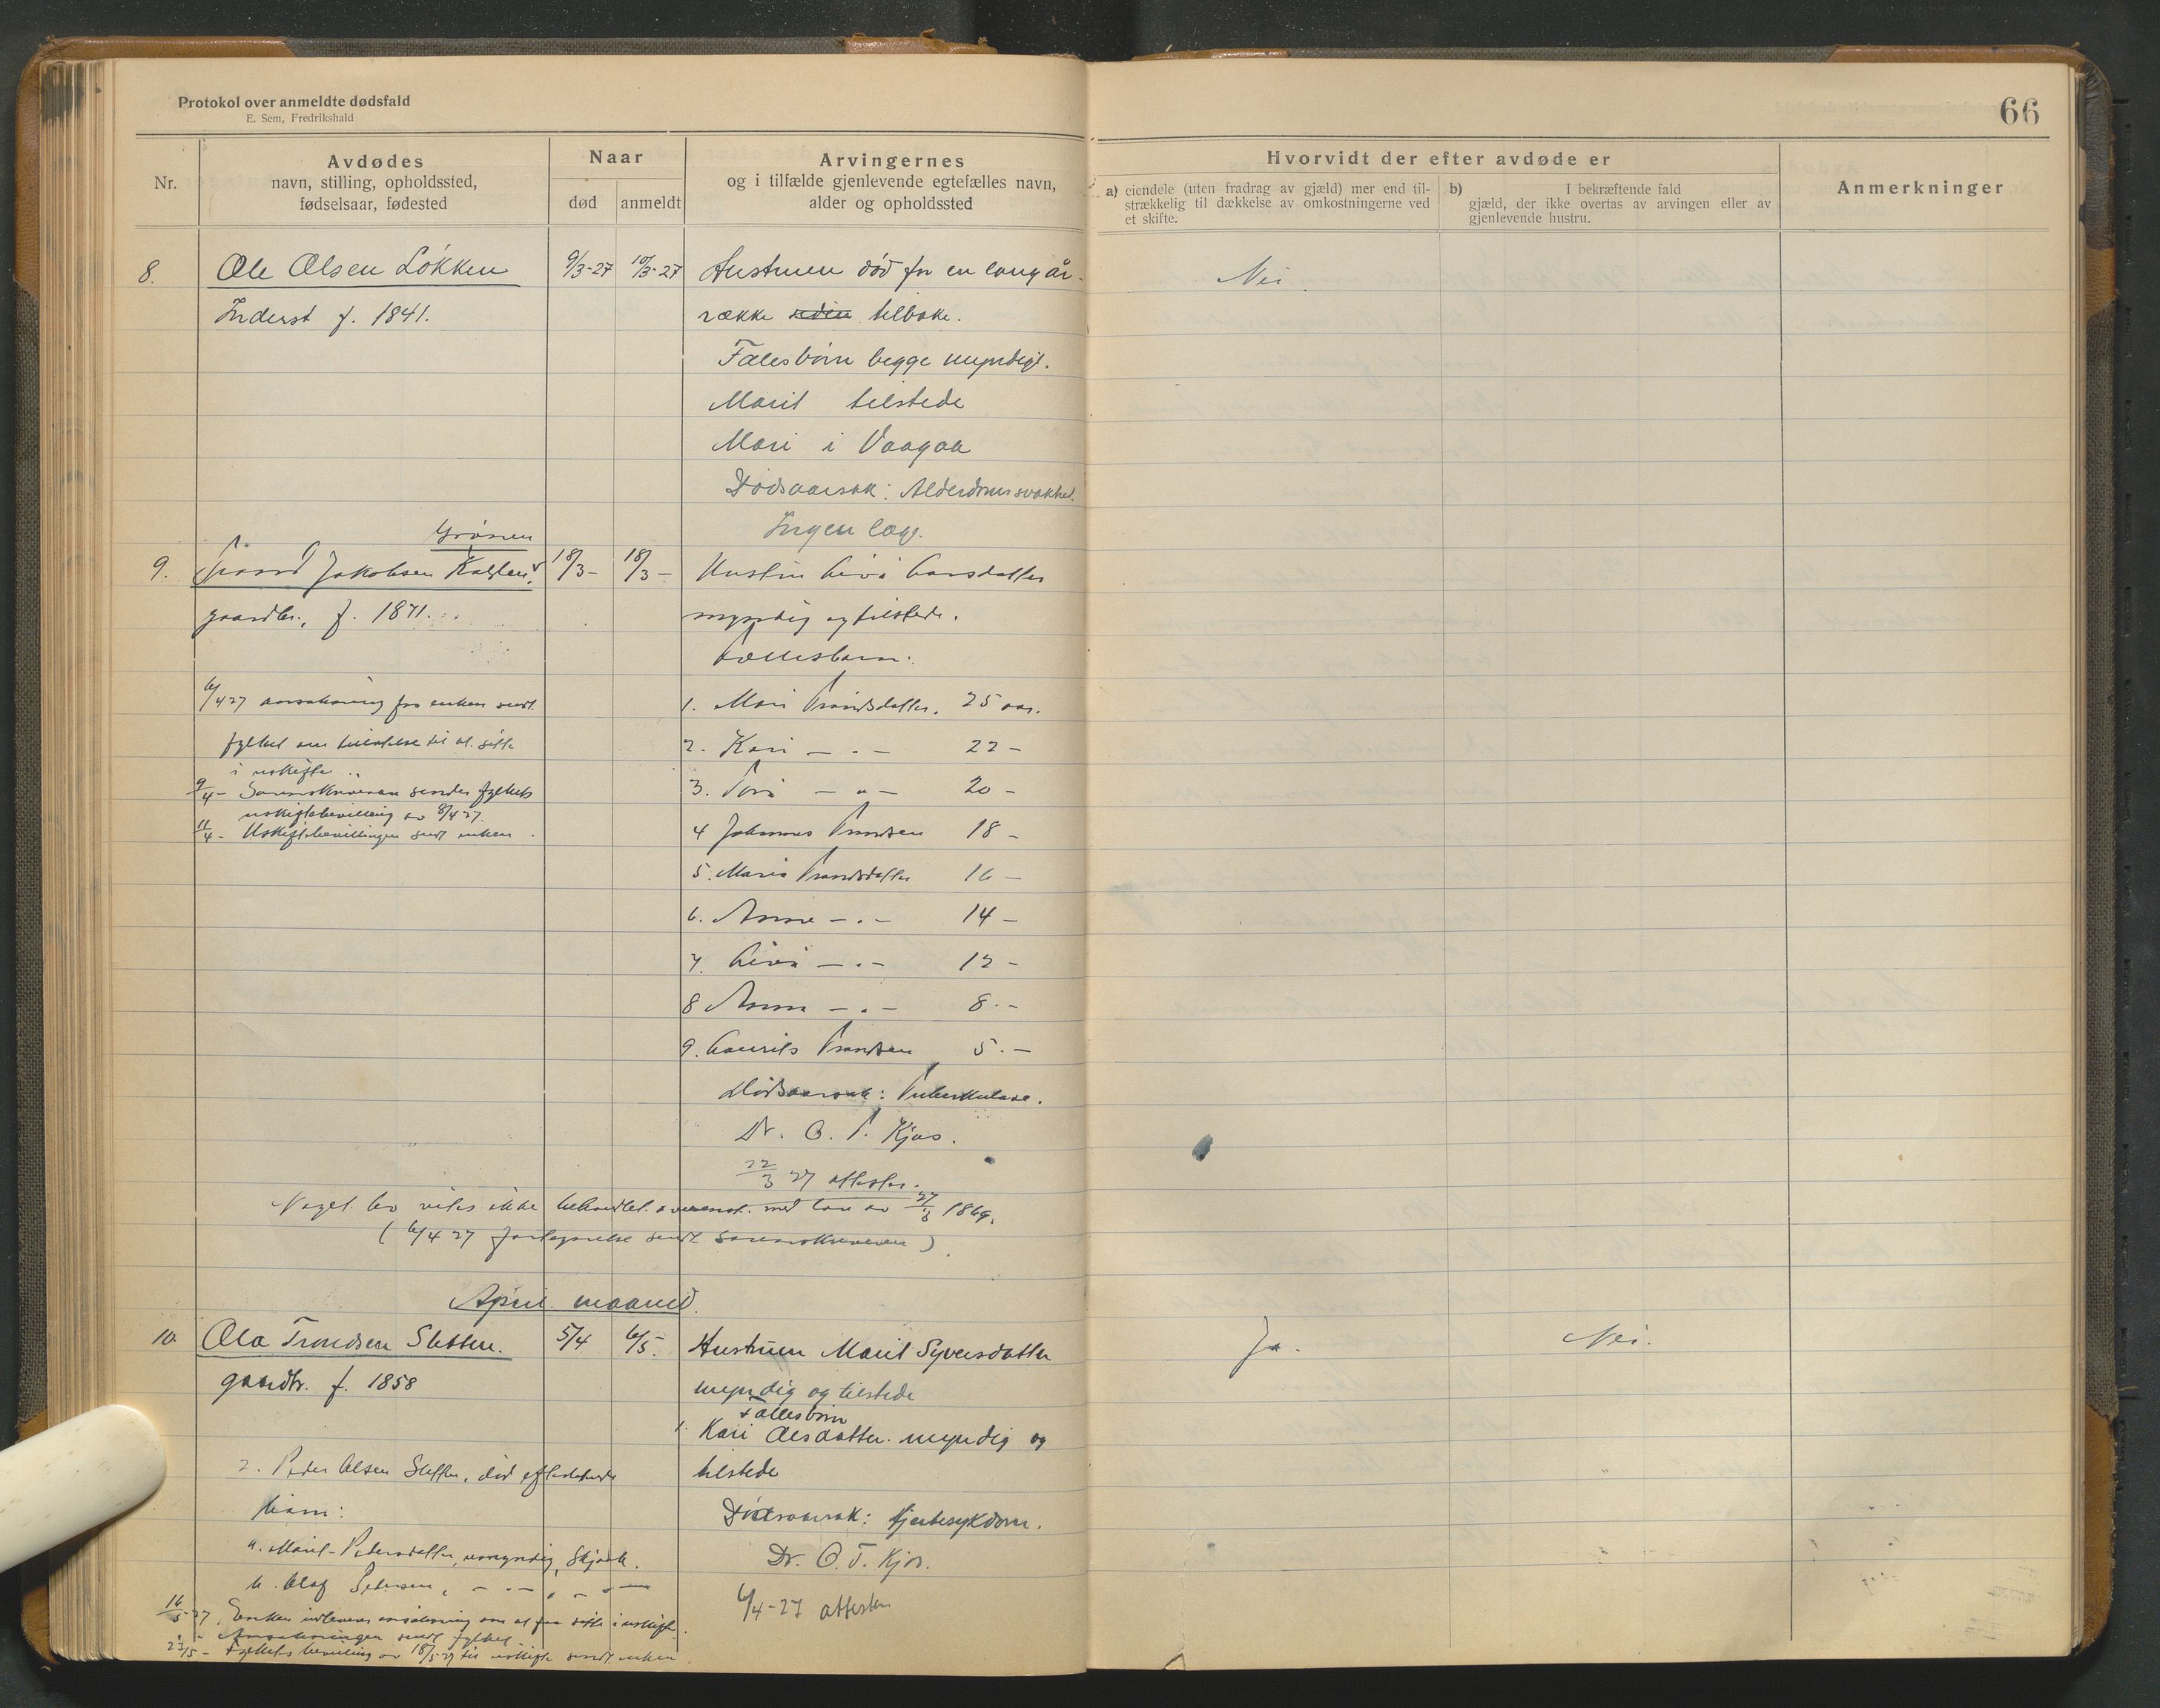 Protokol over anmeldte dødsfald
E. Sem, Fredrikshald
66
Nr.
Avdødes
navn, stilling, opholdssted,
fødselsaar, fødested
Naar
død
anmeldt
Arvingernes
og i tilfælde gjenlevende egtefælles navn,
alder og opholdssted
Hvorvidt der efter avdøde er
a) eiendele (uten fradrag av gjæld) mer end til-
strækkelig til dækkelse av omkostningerne ved
et skifte.
b) I bekræftende fald
gjæld, der ikke overtas av arvingen eller av
gjenlevende hustru.
Anmerkninger
8. Ole Olsen Løkken 9/3-27 10/3-27 Hustruen død for en lang år- Nei
Inderst f. 1841. række siden tilbake.
Fælesbørn begge myndige.
Marit tilstede
Mari i Vaagaa
Dødsaarsak: Alderdomssvakhet.
Ingen læge.
9. Jakobsen 18/3- 18/3- Hustru Livi Larsdatter
gaardbr., f. 1871. myndig og tilstede.
Fællesbarn:
6/4 27 ansøkning fra enken sendt
fylket om tilladelse til at sitte
i uskifte
9/4 - Sorenskriveren sender fylkets
uskiftebevilling av 8/4 27.
11/4 - Uskiftebevillingen sendt enken.
1. Mari Trondsdatter. 25 aar.
2. Kari - " - 22 -
3. Tora - " - 20 -
4 Johannes Trondsen 18 -
5. Maria Trondsdatter 16 -
6. Anne - " - 14 -
7. Livi - " - 12 -
8 Anna - " - 8 -
9. Laurits Trondsen 5 -
Dødsaarsak: Tuberkulose.
Dr. O. T. Kjos.
22/3 27 attester.
Noget bo vites ikke behandlet overenst. med lov av 27/3 1869.
(6/4 27 sendt Sorenskriveren)
April maaned.
10. Ola Trondsen Sletten. 5/4 6/5. Hustruen Marit Syversdatter Ja. Nei.
gaardbr. f. 1858 myndig og tilstede
Fællesbørn
1. Kari Olsdatter. myndig og
tilstede
2. Peder Olsen Sletten, død efterladende
barn:
a. Marit Pedersdatter, umyndig, Skjaak.
b. Olaf Pedersen, - " - , - " -
Dødsaarsak: Hjertesykdom.
Dr. O. T. Kjos.
6/4-27 attester
16/5 27. Enken indleverer ansøkning om at faa sitte i uskifte.
" - Ansøkningen sendt fylket.
23/5 - Fylkets bevilling av 18/5 27 til uskifte sendt enken